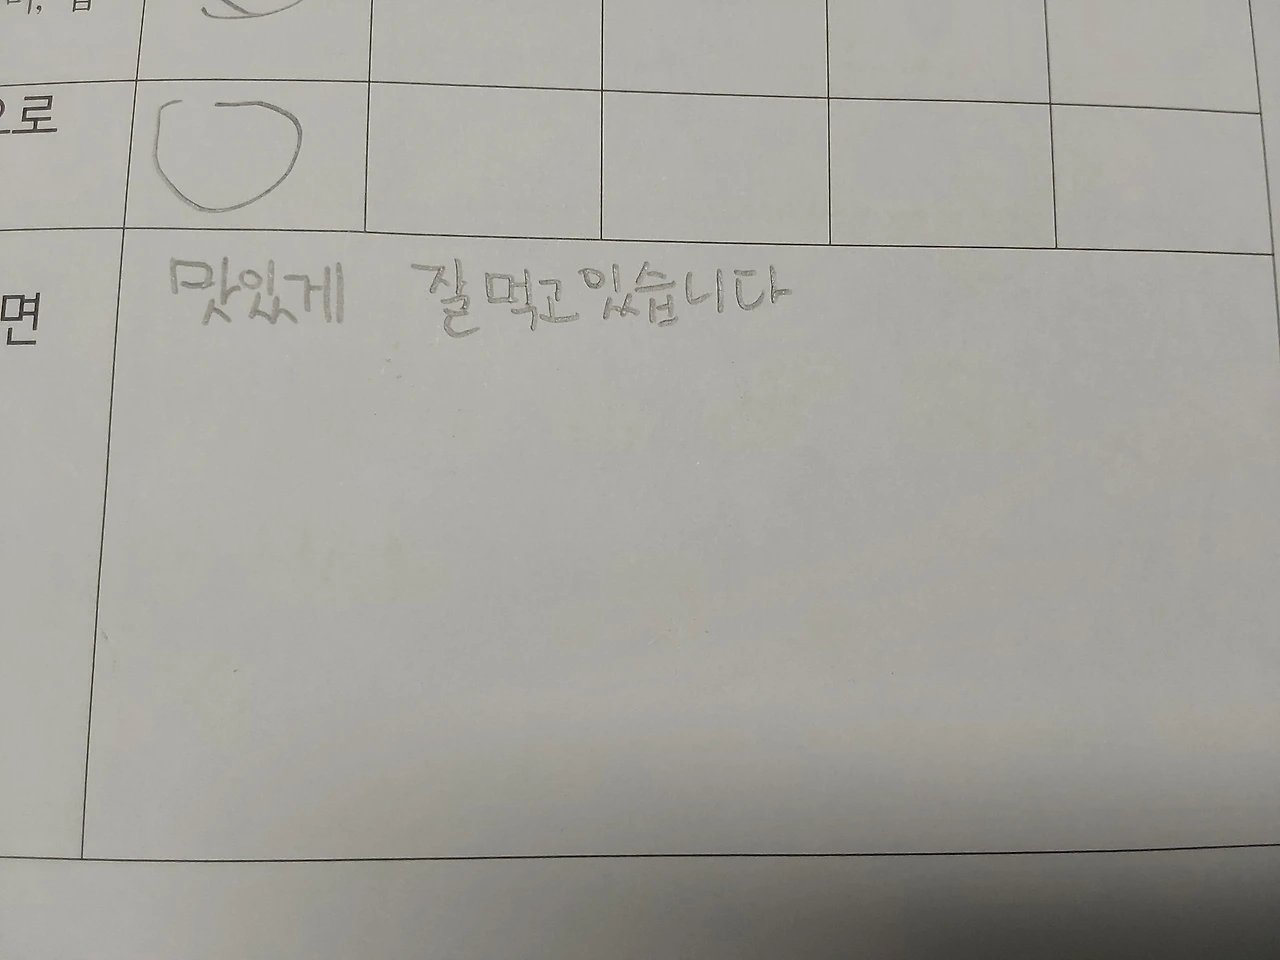 으로
면
맛있게 잘먹고있습니다